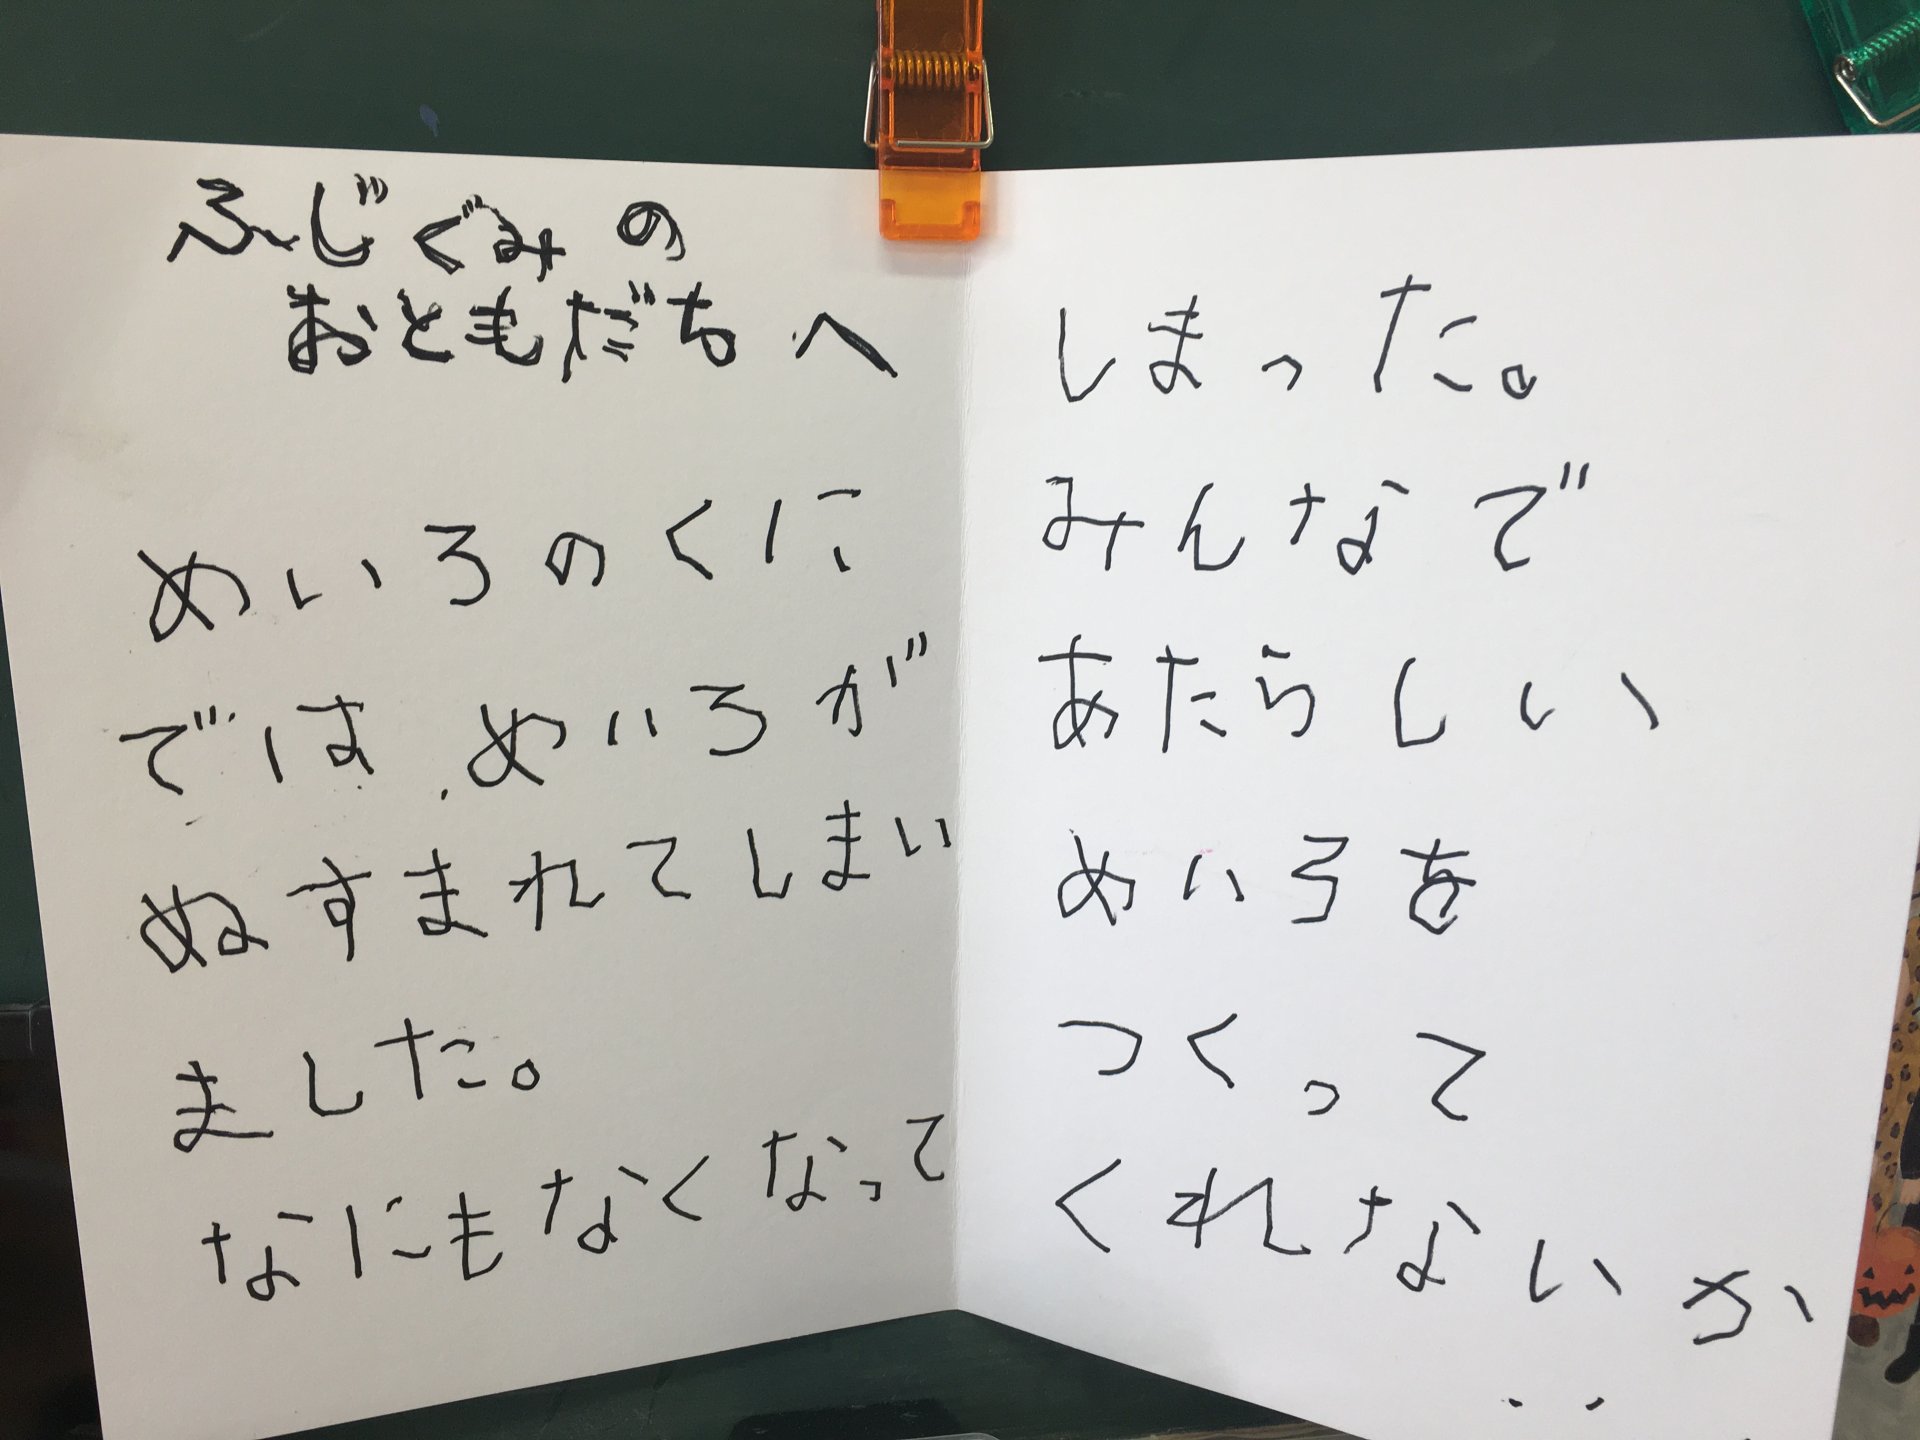 ふじぐみの
おともだちへ
めいろのくに
では めいろが
ぬすまれてしまい
ました。
なにもなくなって
しまった。
みんなで
あたらしい
めいろを
つくって
くれないか